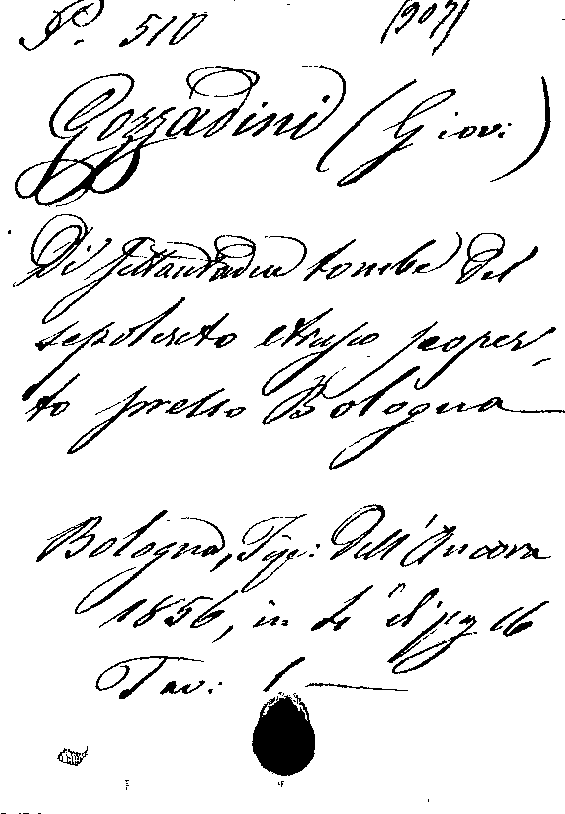 P. 510 (907)
Gozzadini (Giov:
Di settantadue tombe del
sepolcreto etrusco scoper-
to presso Bologna
Bologna, Tip: dell'Ancora
1856, in 4° di pag 16
Tav: 1